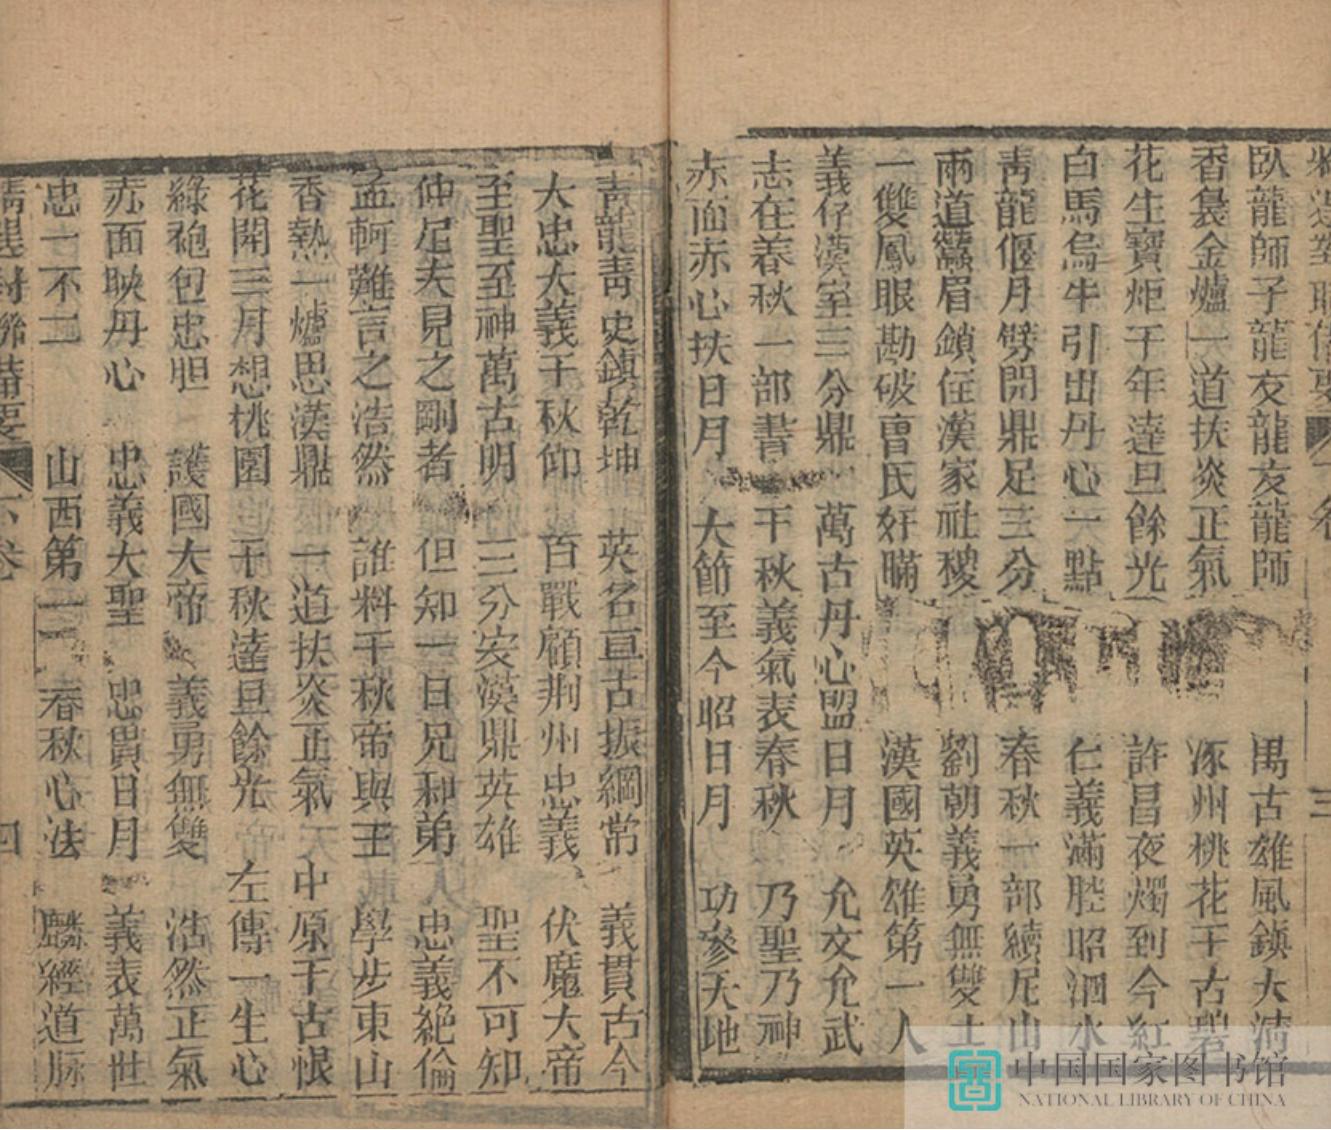 精選對聯備要 下卷 三
臥龍師子龍友龍友龍師 萬古雄風鎮大清
香裊金爐一道扶炎正氣 涿州桃花千古碧
花生寶炬千年達旦餘光 許昌夜燭到今紅
白馬烏牛引出丹心一點 仁義滿腔昭泗水
靑龍偃月劈開鼎足三分 春秋一部續尼山
兩道蠶眉鎖住漢家社稷 劉朝義勇無雙士
一雙鳳眼勘破曹氏奸瞞 漢國英雄第一人
義存漢室三分鼎 萬古丹心盟日月 允文允武
志在春秋一部書 千秋義氣表春秋 乃聖乃神
赤面赤心扶日月 大節至今昭日月 功參天地
靑龍靑史鎮乾坤 英名亘古振綱常 義貫古今
大忠大義千秋仰 百戰顧荆州忠義 伏魔大帝
至聖至神萬古明 三分安漢鼎英雄 聖不可知
仲尼夫見之剛者 但知一日兄和弟 忠義絕倫
孟軻難言之浩然 誰料千秋帝與王 學步東山
香熱一爐思漢鼎 一道扶炎正氣 中原千古恨
花開三月想桃園 千秋達旦餘光 左傳一生心
綠袍包忠胆 護國大帝 義勇無雙 浩然正氣
赤面映丹心 忠義大聖 忠貫日月 義表萬世
忠一不二 山西第一 春秋心法 麟經道脈
精選對聯備要 下卷 四
中国国家图书馆
NATIONAL LIBRARY OF CHINA